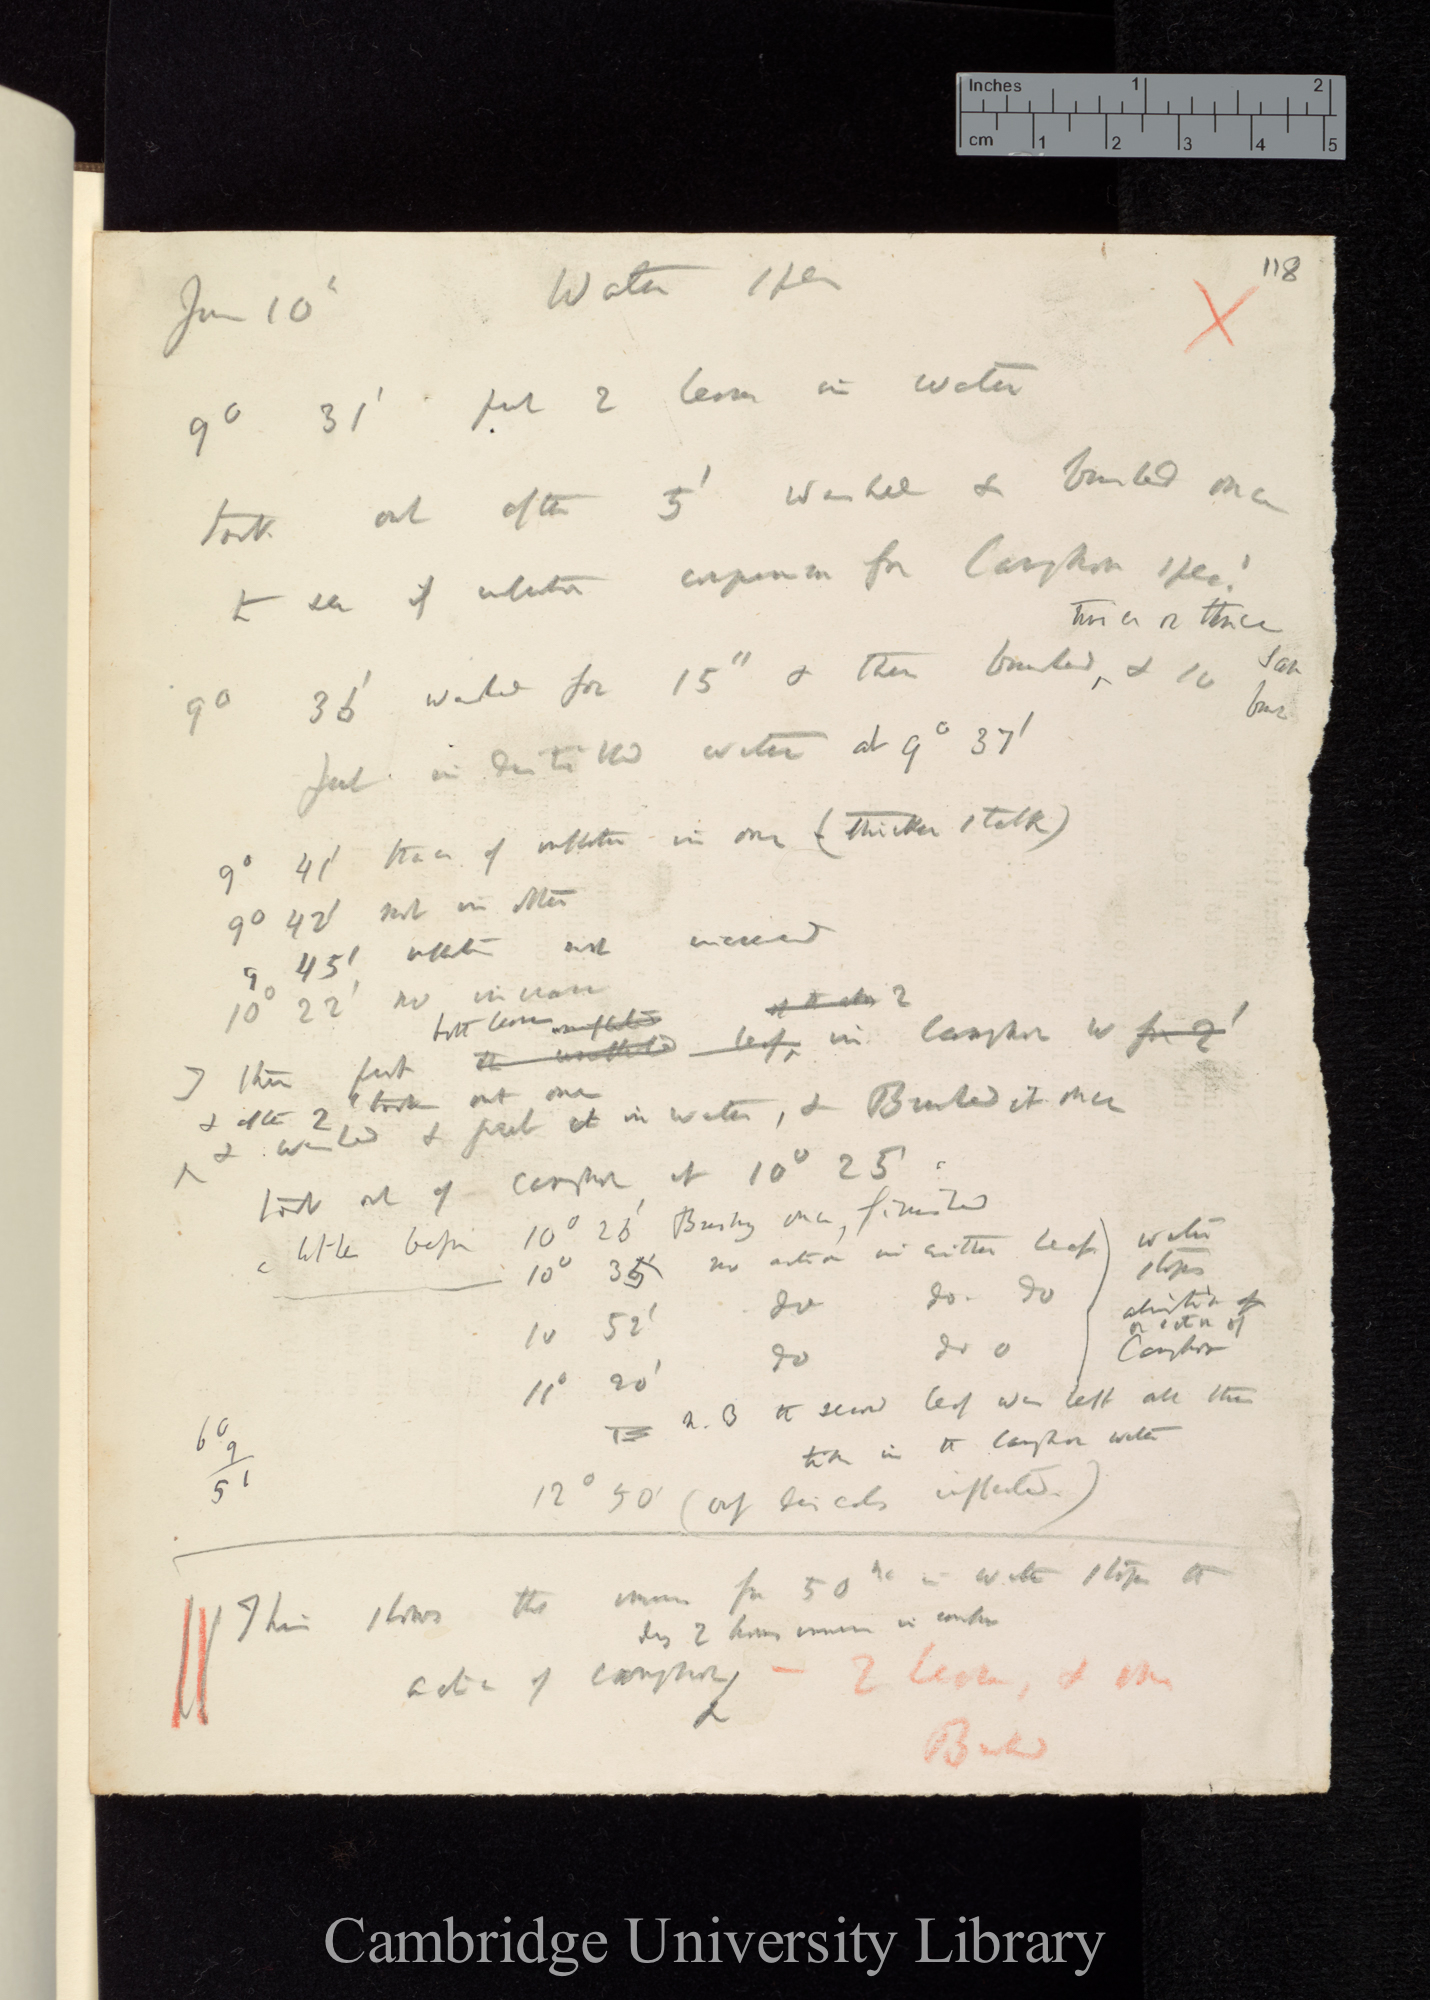 Inches 1 2
cm 1 2 3 4 5
118
June 10'
Water spec
X
9° 31' put 2 leaves in water
took out after 5' washed & brushed once
to see if inflection comparison for Camphor spec!
twice or thrice
9° 36' washed for 15" & then brushed, & 10
put in distilled water at 9° 37'
9° 41' trace of inflection in one (thicker stalk)
9° 42' not in other
9 45' inflection not increased
10° 22' no increase
both leaves
then put leaf in Camphor w for 2'
& after 2' took out one
& washed & put it in water, & Brushed it once
took out of camphor at 10° 25'
little before 10° 26' Brushing once, finished
10° 35' no action in either leaf
water stops
10 52' do do. do
action of
Camphor
11° 20' do do o
N.B the second leaf was left all this
time in the camphor water
6° 9
5'
12° 50' (only discals inflected.)
This shows that immers for 50 in water stops the
2 hours immers in
action of camphor — 2 leaves, & one
Brushed
Cambridge University Library